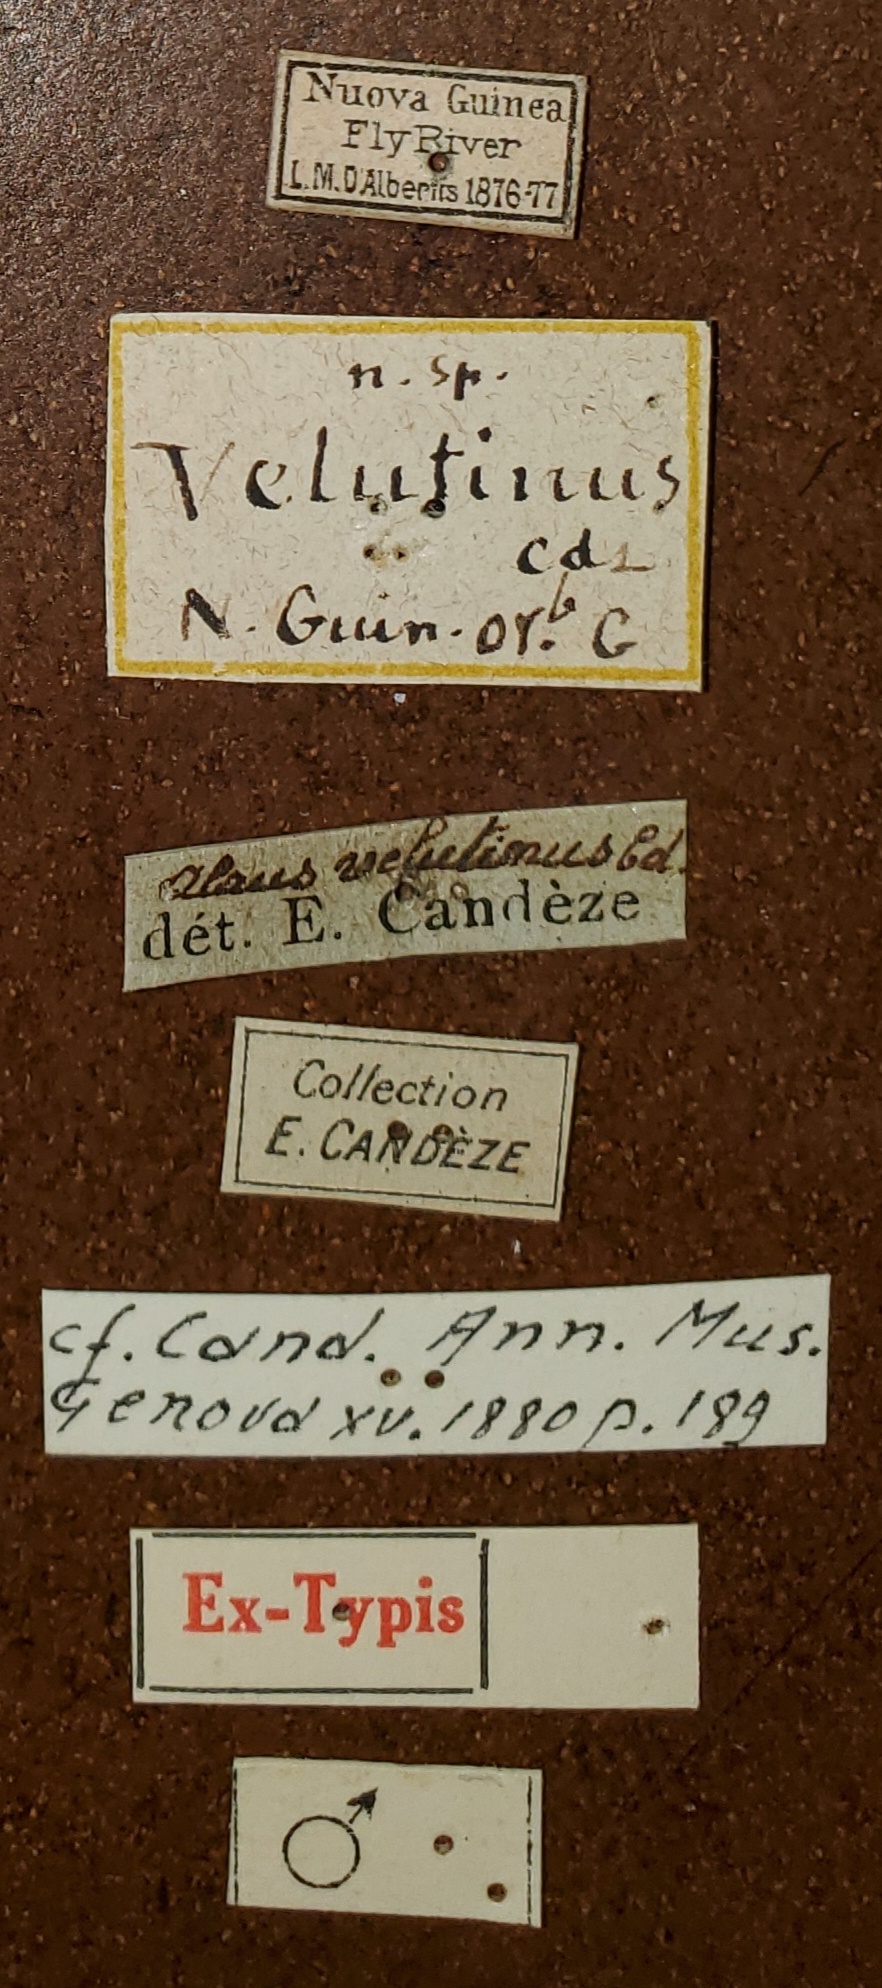 Nuova Guinea
Fly River
L.M.D'Albertis 1876-77
n. sp.
Velutinus
Cdz
N. Guin. or.b G
Alaus velutinus Cd.
dét. E. Candèze
Collection
E. CANDÈZE
cf. Cand. Ann. Mus.
Genova XV. 1880 p. 189
Ex-Typis
♂